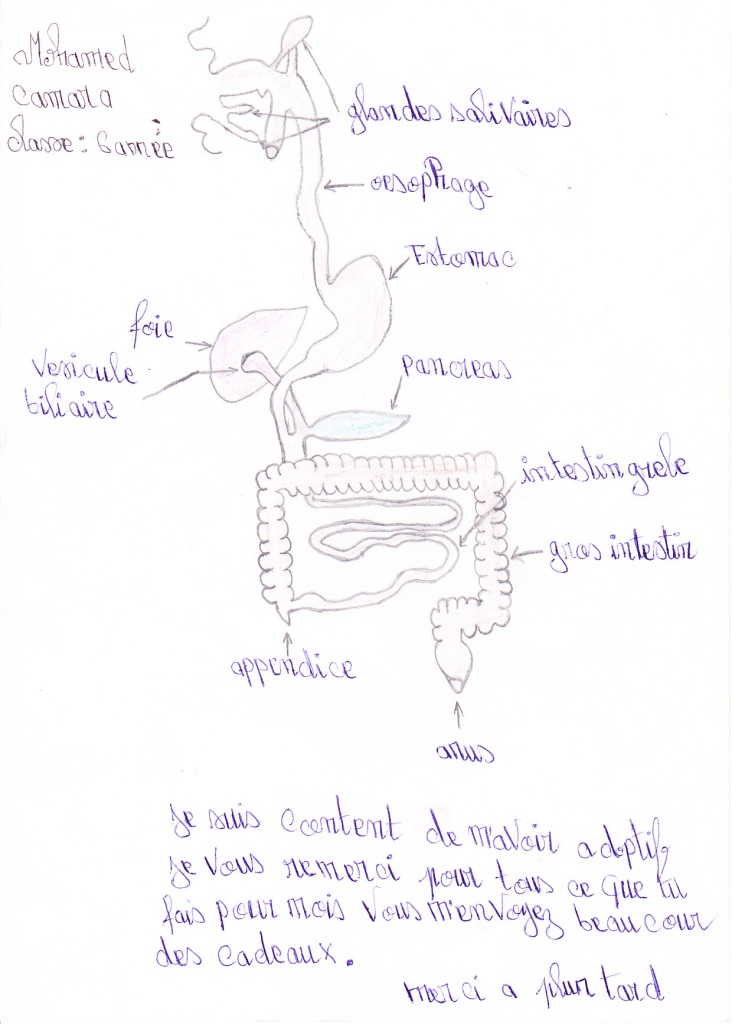 Mohamed
Camara
Classe : 6 année
glandes salivaires
oesophage
Estomac
foie
Vesicule
biliaire
pancreas
intestin grele
gros intestin
appendice
anus
Je suis content de m'avoir adoptif,
Je vous remerci pour tous ce que tu
fais pour mois Vous m'envoyez beaucour
des cadeaux.
merci a plun tard